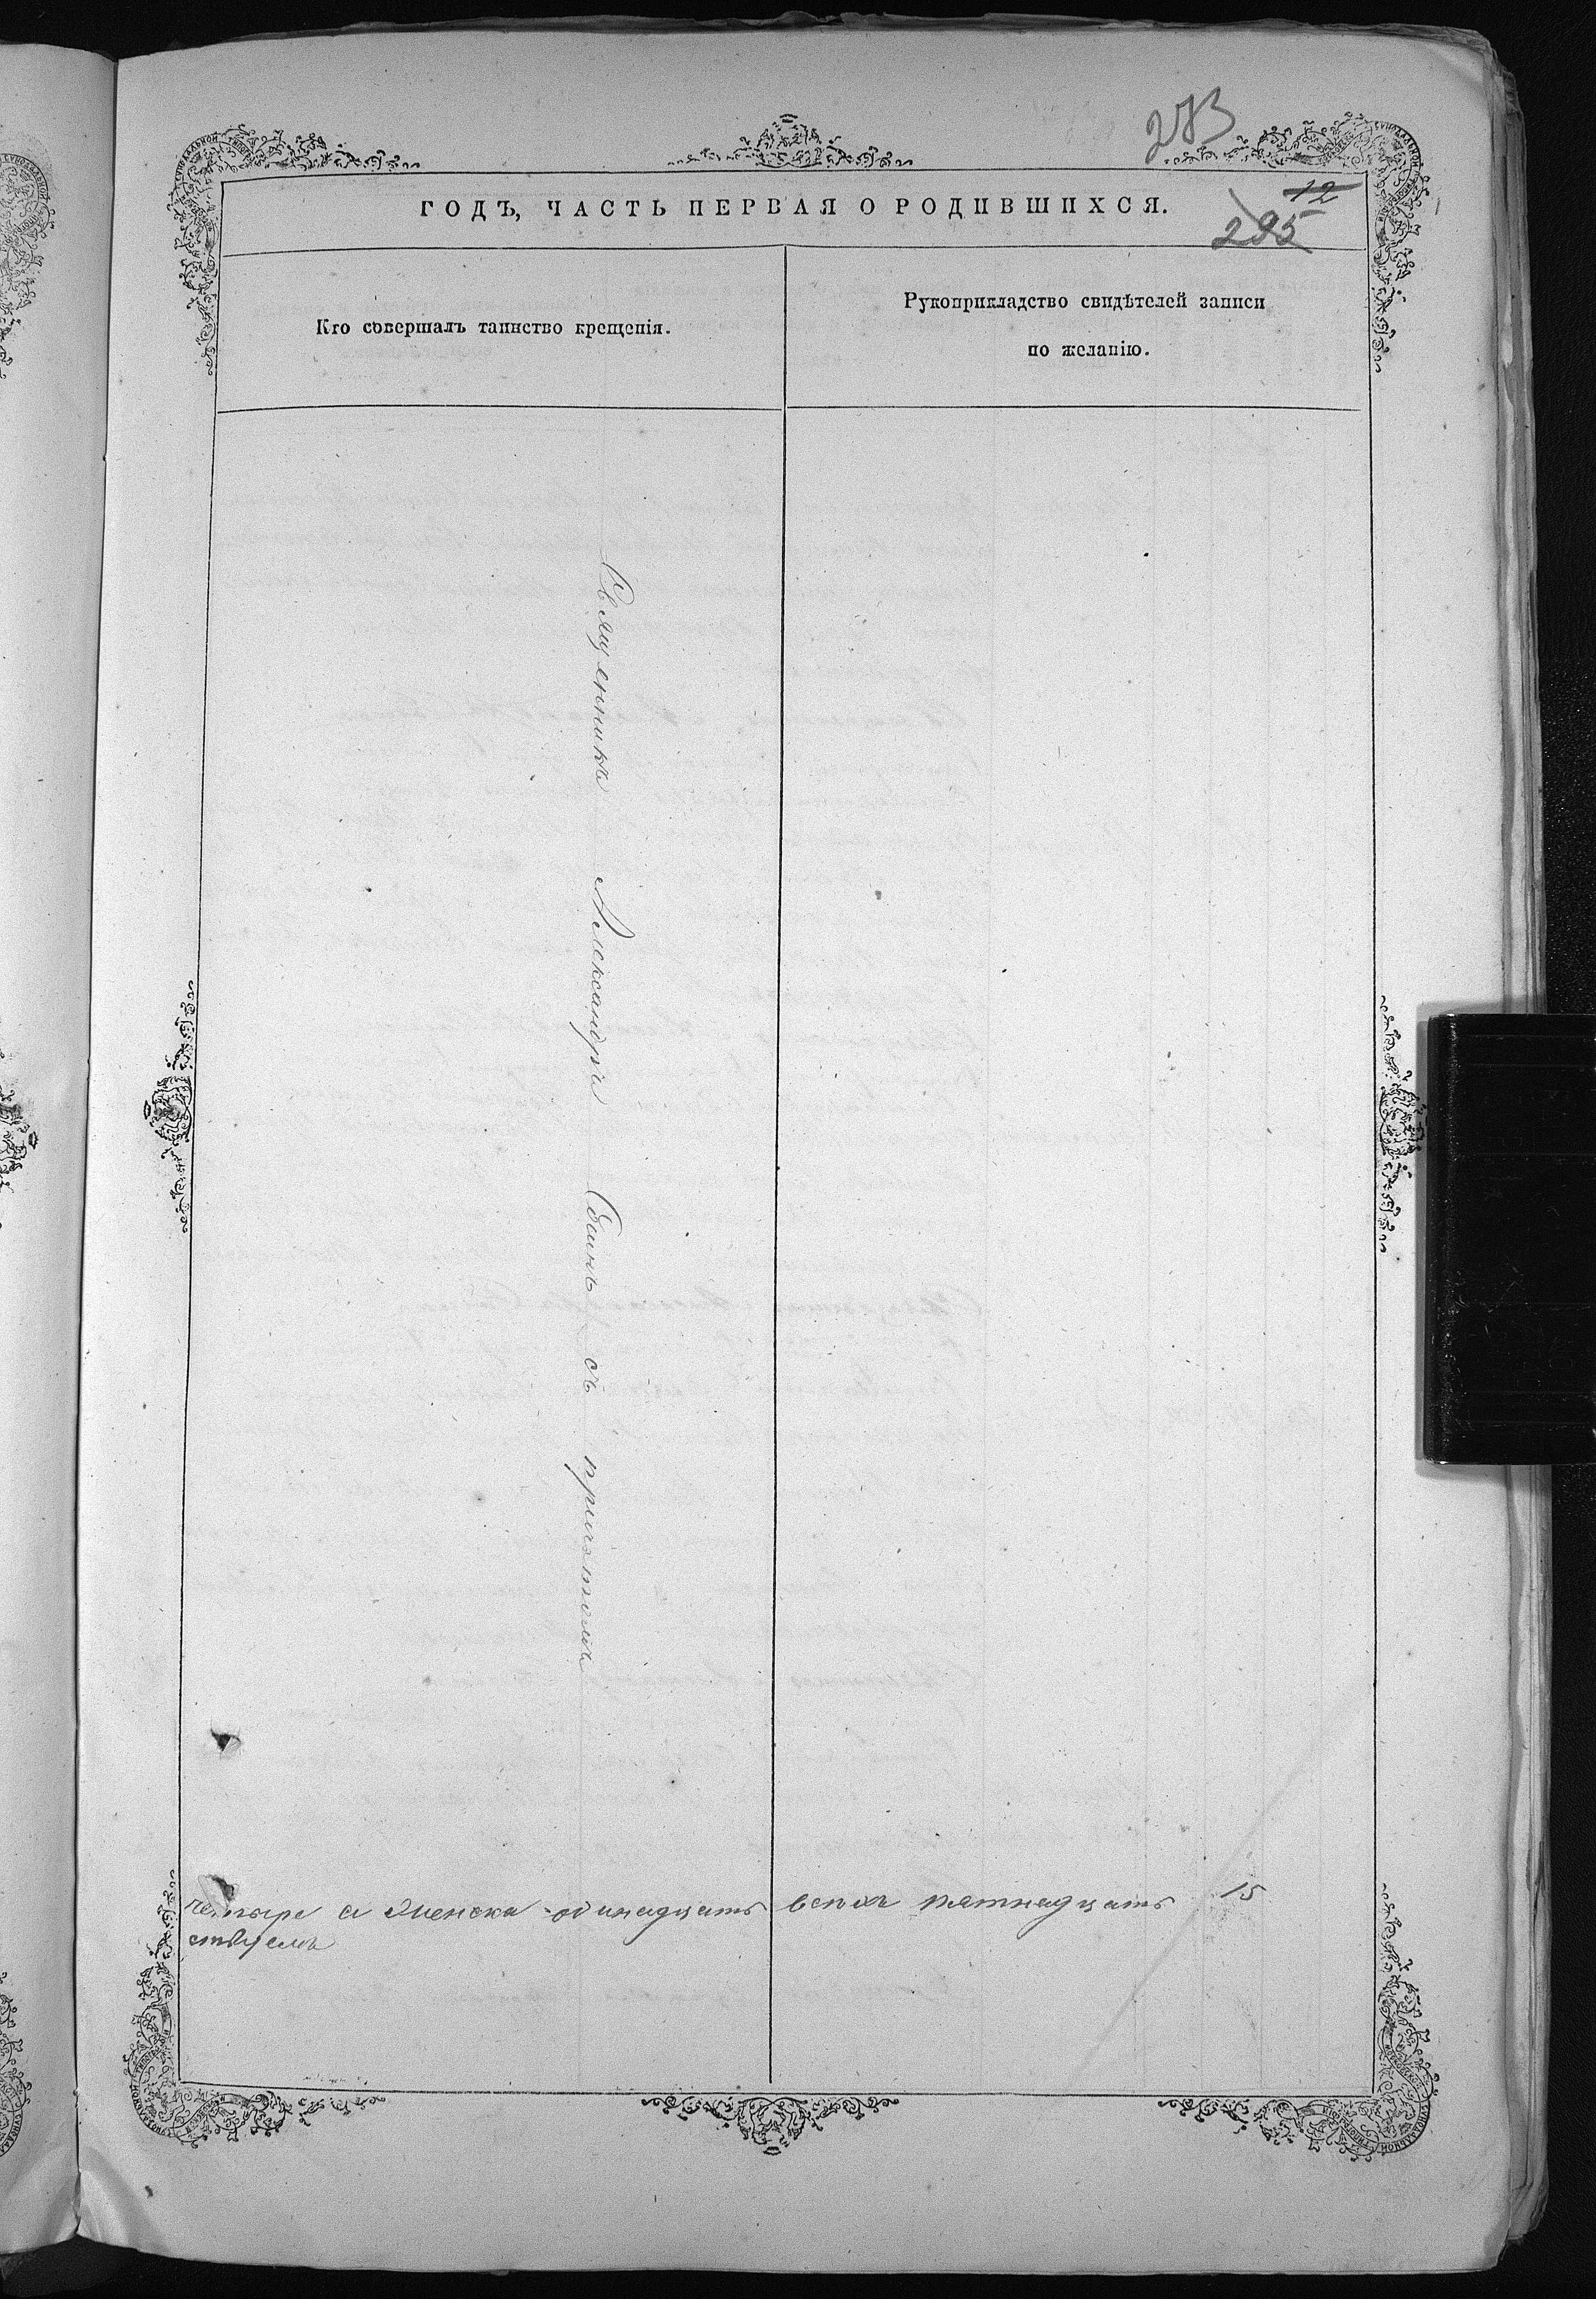 283
12
295
ГОДЪ, ЧАСТЬ ПЕРВАЯ О РОДИВШИХСЯ.
Кто совершалъ таинство крещенія.
Рукоприкладство свидѣтелей записи
по желанію.
Священникъ Александръ съ причтомъ
четыре а женска одинадцать всѣхъ пятнадцать 15